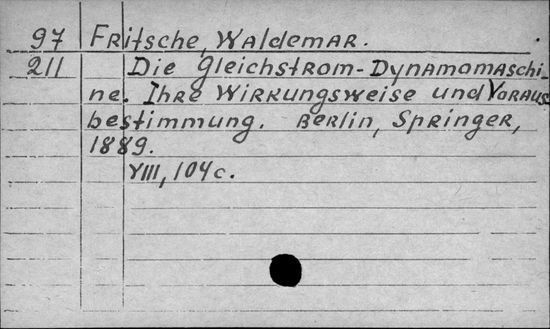 97 Fritsche, Waldemar.
211 Die Gleichstrom-Dynamomaschi
ne. Ihre Wirkungsweise und Voraus
bestimmung. Berlin, Springer,
1889.
VIII, 104 c.